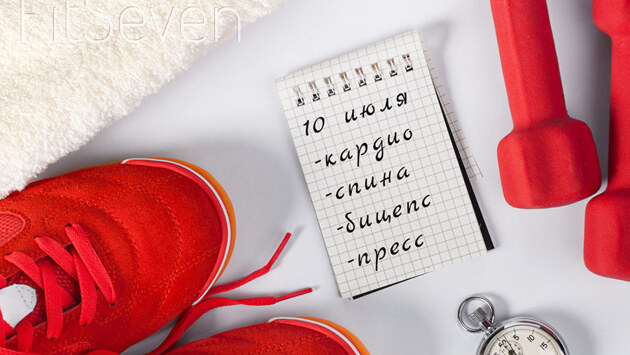 FitSeven
10 июля
-кардио
-спина
-бицепс
-пресс
5
10
15
50